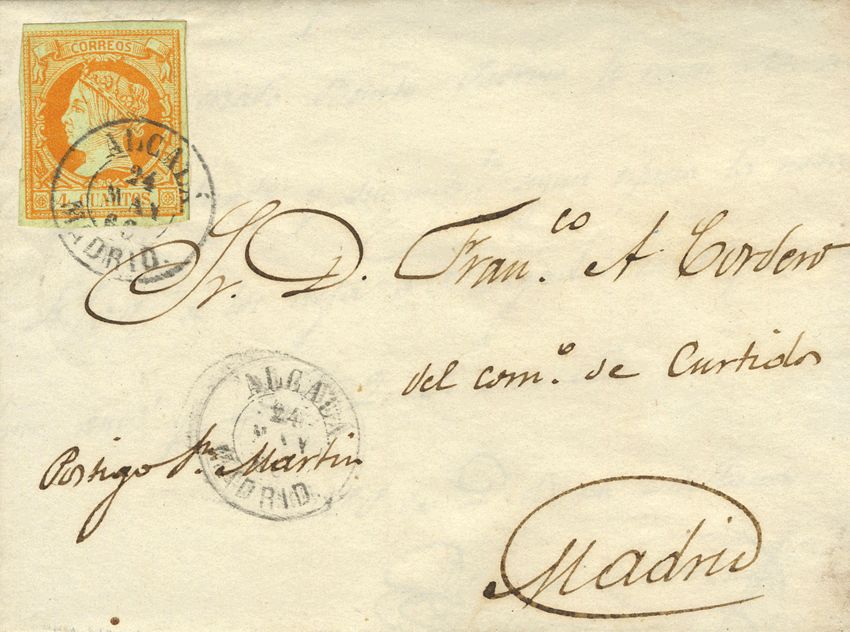 CORREOS
4 CUARTOS
ALCALA
24
MAY
60
MADRID.
Sr. D. Fran.co A Cordero
del com.o de Curtidos
ALCALA
24
MAY
MADRID.
Postigo Sn Martin
Madrid